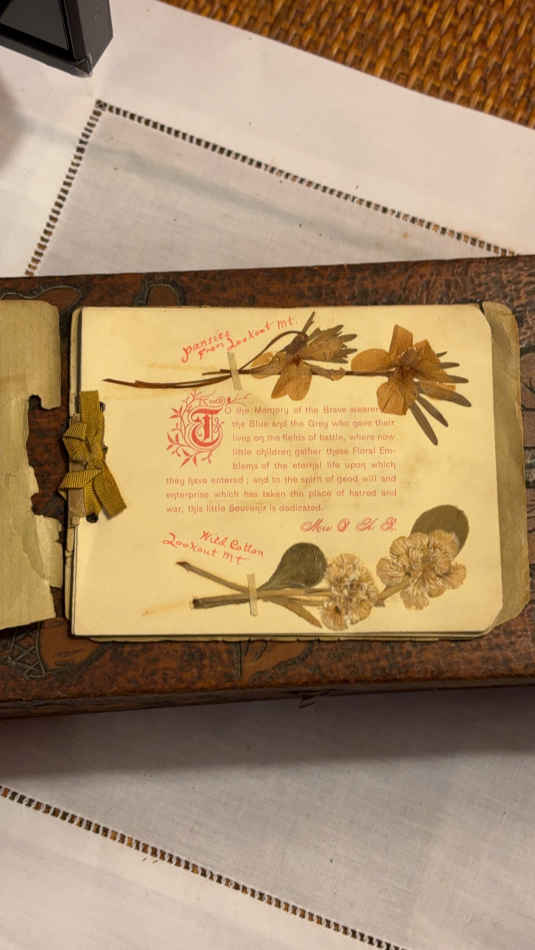 pansies
from Lookout Mt.
To the Memory of the Brave wearers
the Blue and the Grey who gave their
lives on the fields of battle, where now
little children gather these Floral Em-
blems of the eternal life upon which
they have entered ; and to the spirit of good will and
enterprise which has taken the place of hatred and
war, this little Souvenir is dedicated.
Mrs
Wild Cotton
Lookout Mt